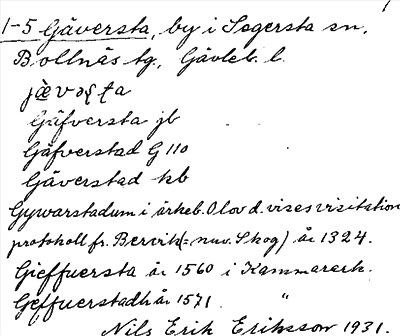 1-5 Gäversta, by i Segersta sn,
Bollnäs tg, Gävleb. l.
Gäfversta jb
Gäfverstad G 110
Gäverstad kb
Gywarstadum i ärkeb. Olov d. vises visitation
protokoll fr. Bervik (= nuv. Skog) år 1324.
Gieffuersta år 1560 i Kammarark.
Geffuerstadh år 1571. "
Nils Erik Eriksson 1931.